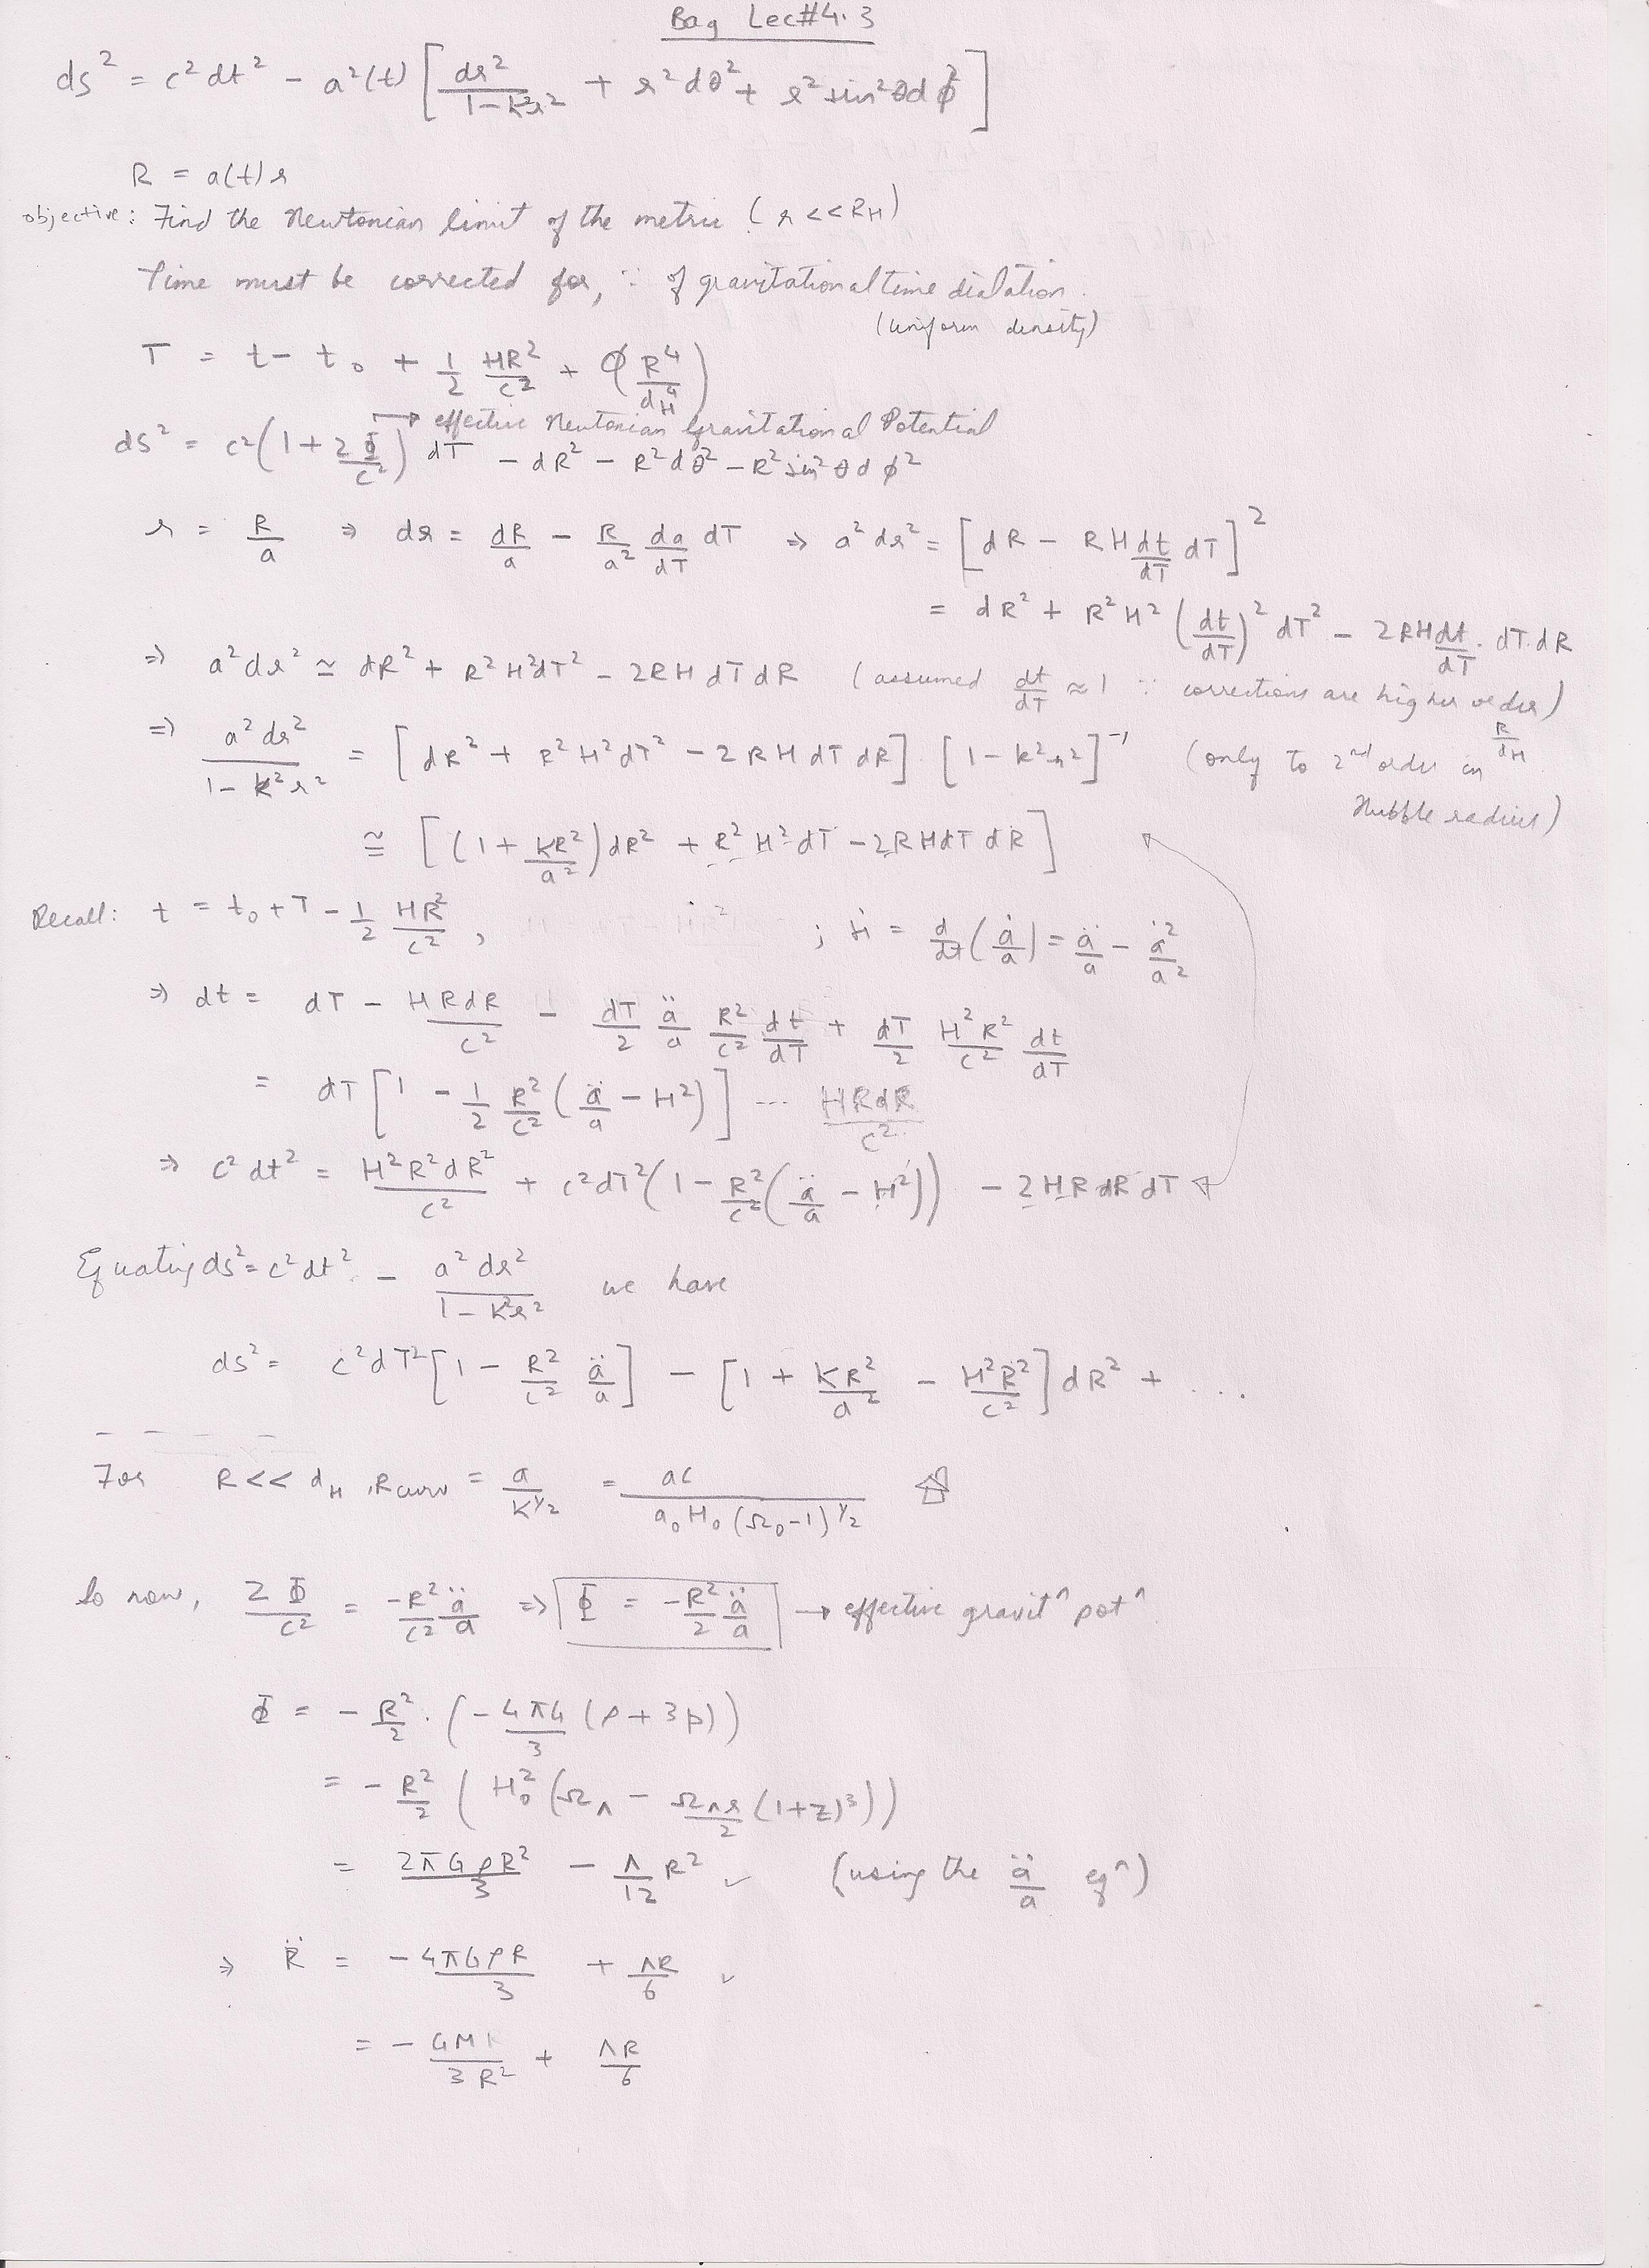 Bag Lec#4.3
ds² = c²dt² - a²(t) [ dr²/(1-k²r²) + r²dθ² + r² sin²θdφ² ]
R = a(t)r
objective: Find the Newtonian limit of the metric (r<<R_H)
Time must be corrected for, ∵ of gravitational time dialation.
(uniform density)
T = t - t₀ + 1/2 HR²/c² + O(R⁴/d_H⁴)
→ effective Newtonian Gravitational Potential
ds² = c²(1 + 2Φ/c²) dT - dR² - R²dθ² - R² sin²θdφ²
r = R/a ⇒ dr = dR/a - R/a² da/dT dT ⇒ a²dr² = [dR - RH dt/dT dT]²
= dR² + R²H² (dt/dT)² dT² - 2RH dt/dT . dT.dR
⇒ a²dr² ≃ dR² + R²H²dT² - 2RH dT dR (assumed dt/dT ≈ 1 ∵ corrections are higher order)
⇒ a²dr²/(1-k²r²) = [dR² + R²H²dT² - 2RH dT dR] [1-k²r²]⁻¹ (only to 2nd order in R/d_H
Hubble radius)
≅ [(1 + KR²/a²)dR² + R²H²dT - 2RHdT dR]
Recall: t = t₀ + T - 1/2 HR²/c² , ; Ḣ = d/dt(ȧ/a) = ä/a - ȧ²/a²
⇒ dt = dT - HRdR/c² - dT/2 ä/a R²/c² dt/dT + dT/2 H²R²/c² dt/dT
= dT [1 - 1/2 R²/c² (ä/a - H²)] --- HRdR/c²
⇒ c²dt² = H²R²dR²/c² + c²dT²(1 - R²/c²(ä/a - H²)) - 2HRdRdT
Equating ds² = c²dt² - a²dr²/(1-k²r²) we have
ds² = c²dT²[1 - R²/c² ä/a] - [1 + KR²/a² - H²R²/c²]dR² + ...
- - - -
For R << d_H , Rcurv = a/K^½ = ac/(a₀H₀(Ω₀-1)^½)
So now, 2Φ/c² = -R²/c² ä/a ⇒ Φ = -R²/2 ä/a → effective gravitⁿ potⁿ
Φ = - R²/2 . (-4πG/3 (ρ+3p))
= - R²/2 ( H₀² (Ω_Λ - Ω_Λr/2 (1+z)³))
= 2πGρR²/3 - Λ/12 R² ✓ (using the ä/a eqⁿ)
⇒ R̈ = -4πGρR/3 + ΛR/6 ✓
= - GM/3R² + ΛR/6